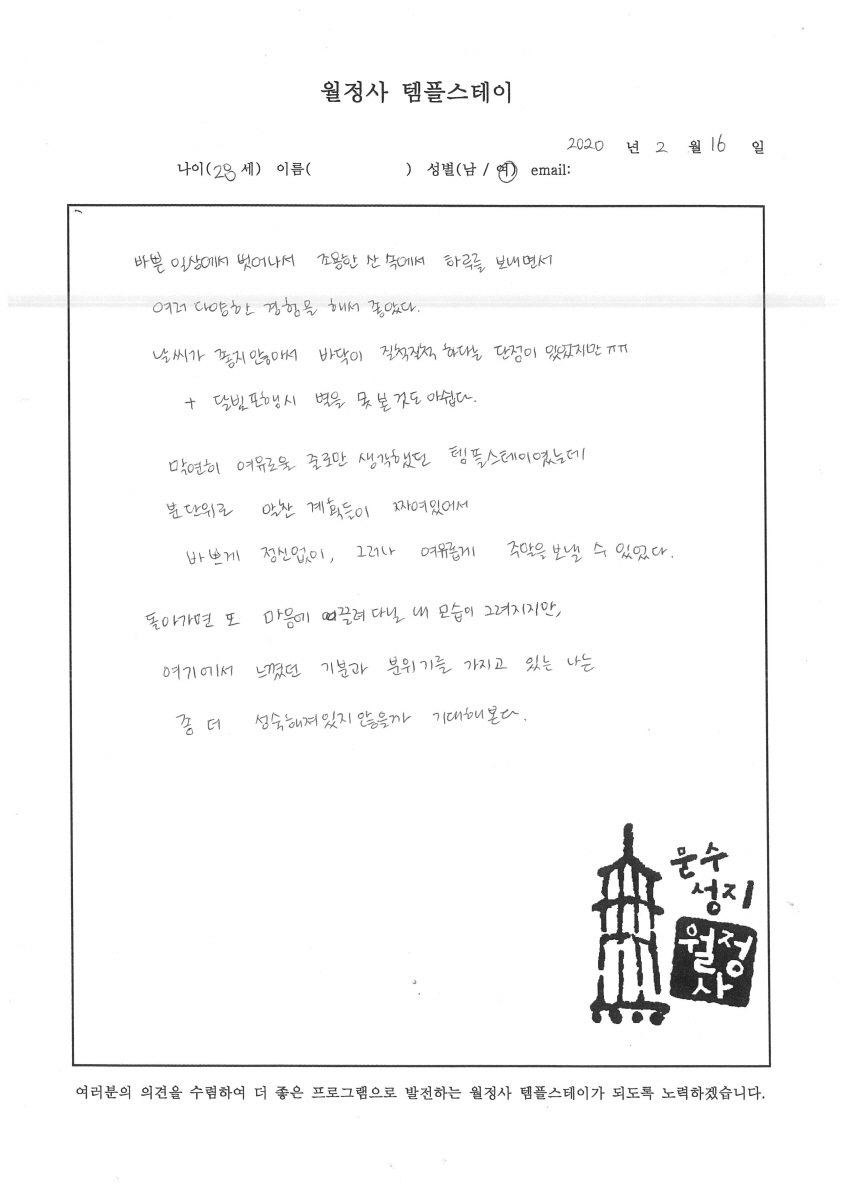 월정사 템플스테이
2020 년 2 월 16 일
나이(28 세) 이름( ) 성별(남 / 여) email:
바쁜 일상에서 벗어나서 조용한 산 속에서 하루를 보내면서
여러 다양한 경험을 해서 좋았다.
날씨가 좋지 않아서 바닥이 질척질척 하다는 단점이 있었지만 ㅠㅠ
+ 달빛포행시 별을 못 본 것도 아쉽다.
막연히 여유로울 줄로만 생각했던 템플스테이였는데
분단위로 알찬 계획들이 짜여있어서
바쁘게 정신없이, 그러나 여유롭게 주말을 보낼 수 있었다.
돌아가면 또 마음에 끌려다닐 내 모습이 그려지지만,
여기에서 느꼈던 기분과 분위기를 가지고 있는 나는
좀 더 성숙해져있지 않을까 기대해본다.
문수
성지
월정
사
여러분의 의견을 수렴하여 더 좋은 프로그램으로 발전하는 월정사 템플스테이가 되도록 노력하겠습니다.